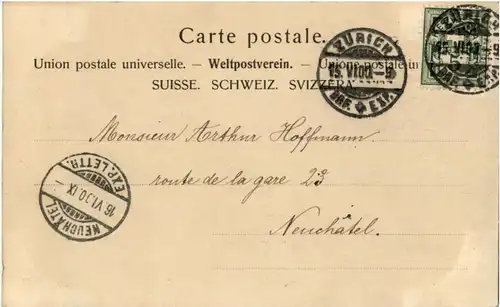 Carte postale.
Union postale universelle. – Weltpostverein. – Unione postale un
SUISSE. SCHWEIZ. SVIZZERA.
ZÜRICH
15.VI.00.–9
BRF. ✥ EXP.
ZÜRICH
15.VI.00.–9
Monsieur Arthur Hoffmann.
route de la gare 23
Neuchâtel.
EXP. LETTR.
16 VI.00 IX –
NEUCHÂTEL